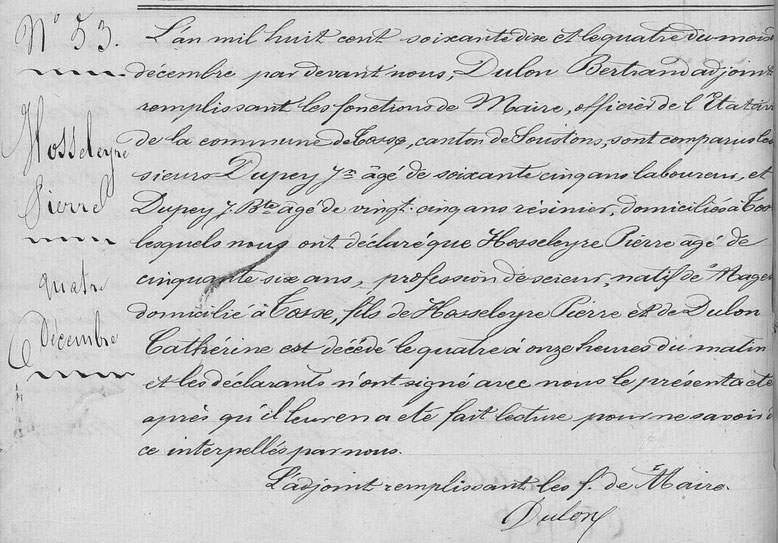 N° 53.
Hosseleyre
Pierre
quatre
Décembre
L'an mil huit cent soixante dix et le quatre du mois
décembre par devant nous, Dulon Bertrand adjoint
remplissant les fonctions de Maire, officier de l'Etat
de la commune de Tosse, canton de Soustons, sont comparus les
sieurs Dupey Jn âgé de soixante cinq ans laboureur, et
Dupey J. Bte âgé de vingt-cinq ans résinier, domiciliés à Tos
lesquels nous ont déclaré que Hosseleyre Pierre âgé de
cinquante six ans, profession de scieur, natif de Mages
domicilié à Tosse, fils de Hosseleyre Pierre et de Dulon
Cathérine est décédé le quatre à onze heures du matin
et les déclarants n'ont signé avec nous le présent acte
après qu'il leur en a été fait lecture pour ne savoir
ce interpellés par nous.
L'adjoint remplissant les f. de Maire.
Dulon